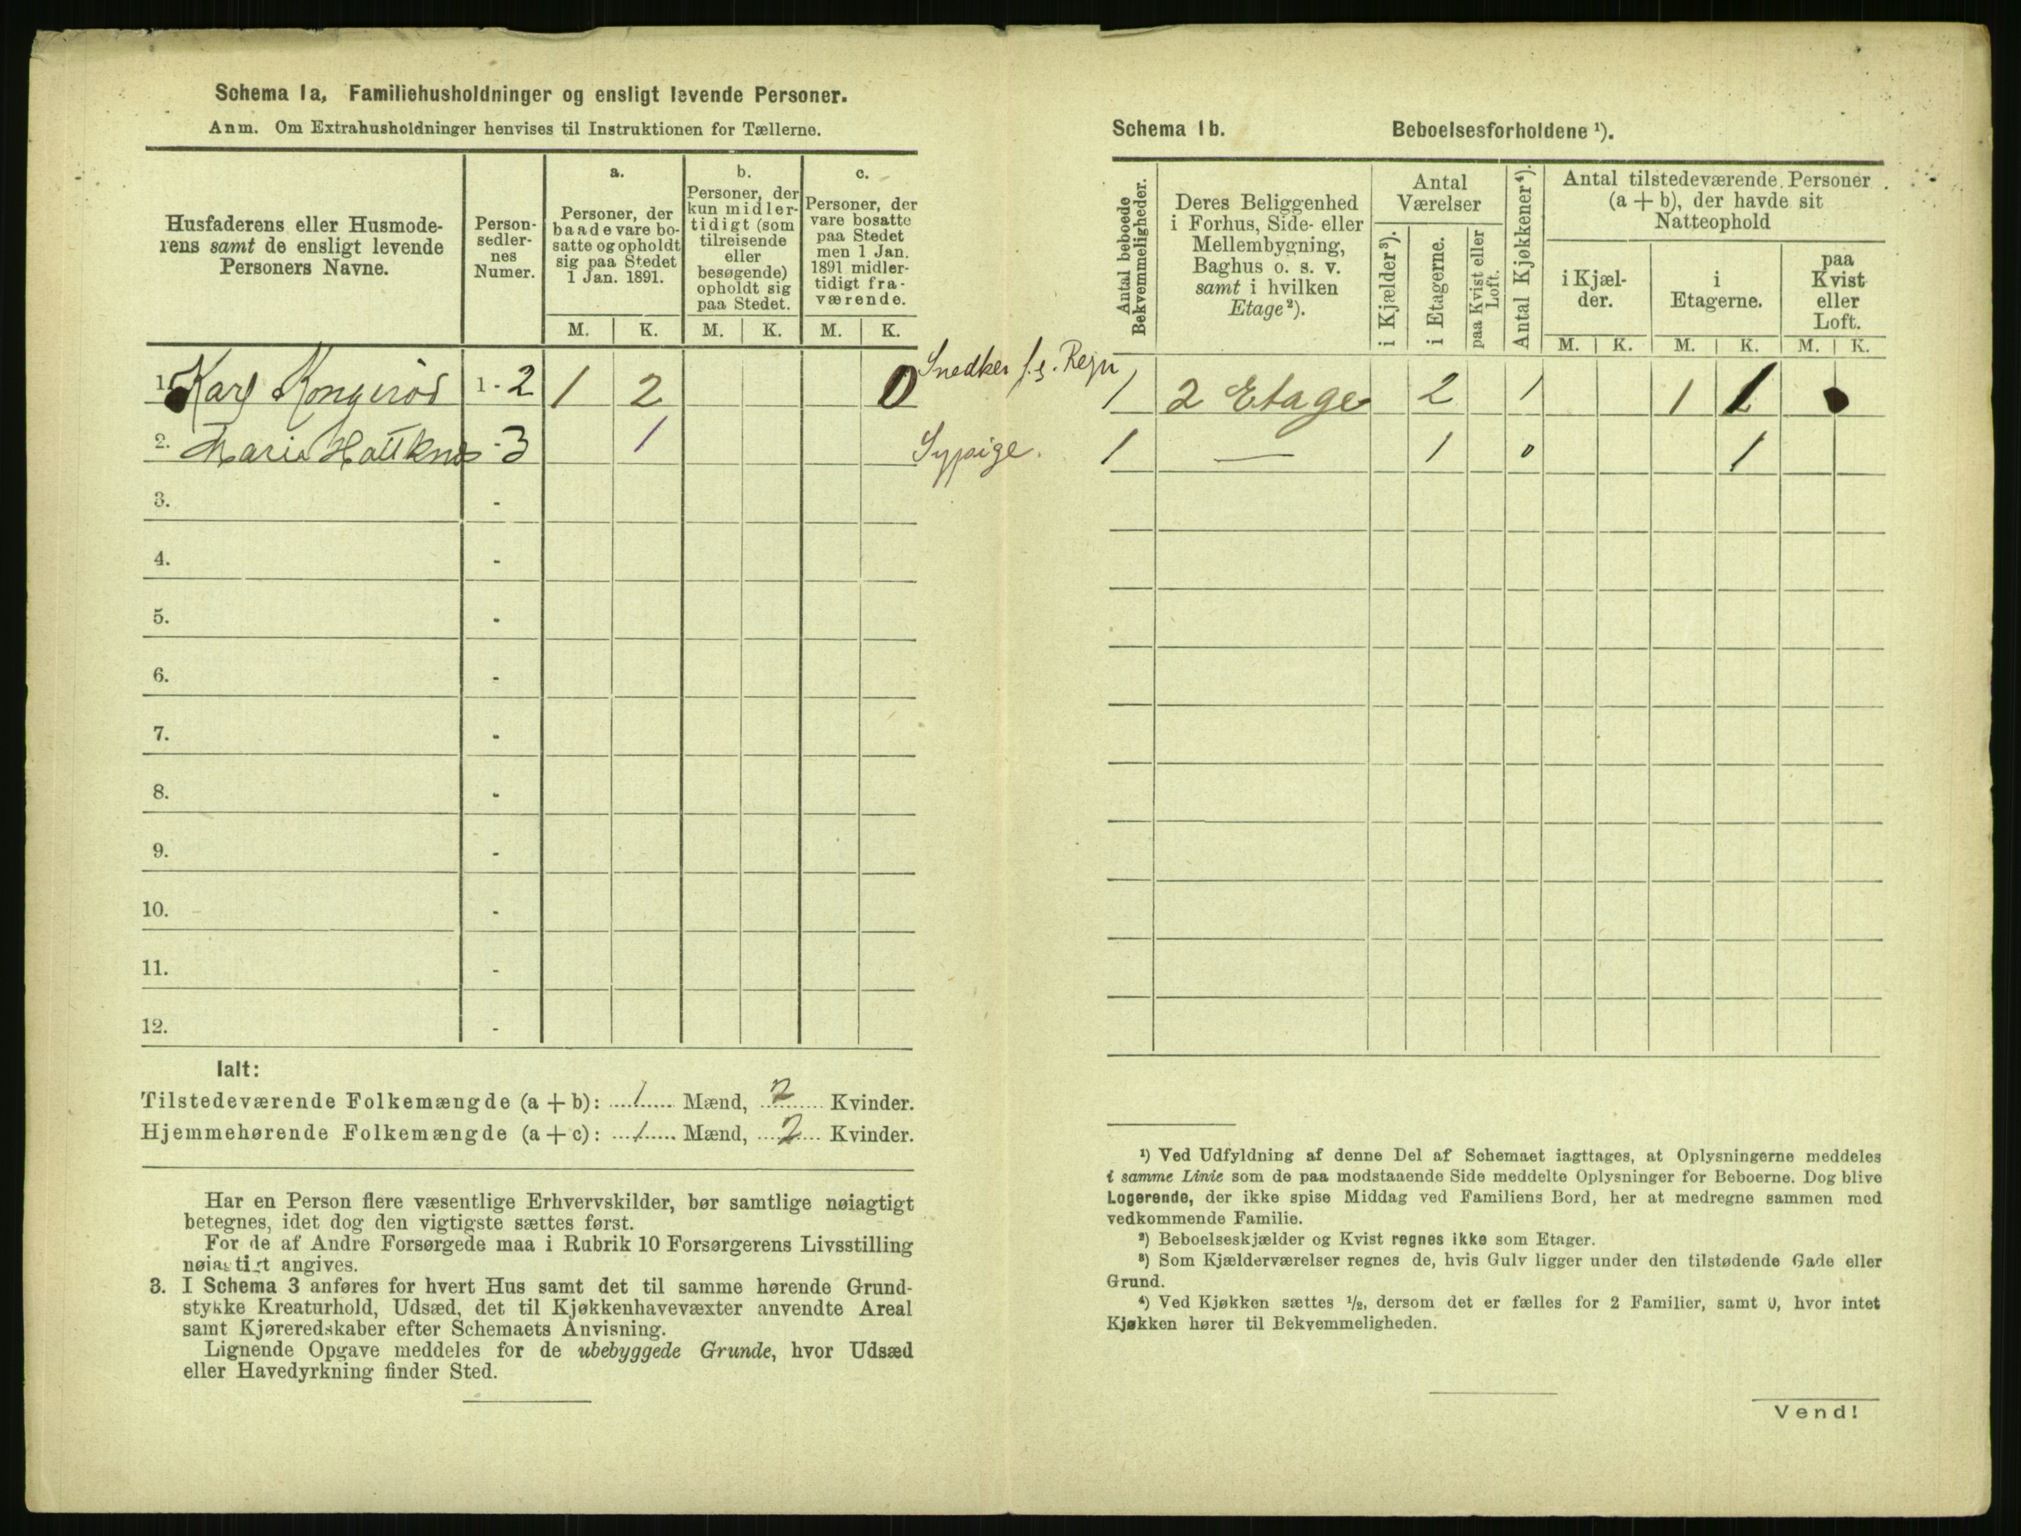 Schema 1a, Familiehusholdninger og ensligt levende Personer.
Anm. Om Extrahusholdninger henvises til Instruktionen for Tællerne.
Husfaderens eller Husmode-
rens samt de ensligt levende
Personers Navne.
Person-
sedler-
nes
Numer.
a.
Personer, der
baade vare bo-
satte og opholdt
sig paa Stedet
1 Jan. 1891.
b.
Personer, der
kun midler-
tidigt (som
tilreisende
eller
besøgende)
opholdt sig
paa Stedet.
c.
Personer, der
vare bosatte
paa Stedet
men 1 Jan.
1891 midler-
tidigt fra-
værende.
M. K. M. K. M. K.
1. Karl Kongerød 1 - 2 1 2 0 Snedker f. s. Regn
2. Marie - 3 1 Sypige.
3. -
4. -
5. -
6. -
7. -
8. -
9. -
10. -
11. -
12. -
Ialt:
Tilstedeværende Folkemængde (a + b): 1 Mænd, 2 Kvinder.
Hjemmehørende Folkemængde (a + c): 1 Mænd, 2 Kvinder.
Har en Person flere væsentlige Erhvervskilder, bør samtlige nøiagtigt
betegnes, idet dog den vigtigste sættes først.
For de af Andre Forsørgede maa i Rubrik 10 Forsørgerens Livsstilling
nøiagtigt angives.
3. I Schema 3 anføres for hvert Hus samt det til samme hørende Grund-
stykke Kreaturhold, Udsæd, det til Kjøkkenhavevæxter anvendte Areal
samt Kjøreredskaber efter Schemaets Anvisning.
Lignende Opgave meddeles for de ubebyggede Grunde, hvor Udsæd
eller Havedyrkning finder Sted.
Schema 1b. Beboelsesforholdene ¹).
Antal beboede
Bekvemmeligheder.
Deres Beliggenhed
i Forhus, Side- eller
Mellembygning,
Baghus o. s. v.
samt i hvilken
Etage ²).
Antal
Værelser
i Kjælder ³).
i Etagerne.
paa Kvist eller
Loft.
Antal Kjøkkener ⁴).
Antal tilstedeværende Personer
(a + b), der havde sit
Natteophold
i Kjæl-
der.
i
Etagerne.
paa
Kvist
eller
Loft.
M. K. M. K. M. K.
1 2 Etage 2 1 1 1
1 — 1 0 1
¹) Ved Udfyldning af denne Del af Schemaet iagttages, at Oplysningerne meddeles
i samme Linie som de paa modstaaende Side meddelte Oplysninger for Beboerne. Dog blive
Logerende, der ikke spise Middag ved Familiens Bord, her at medregne sammen med
vedkommende Familie.
²) Beboelseskjælder og Kvist regnes ikke som Etager.
³) Som Kjælderværelser regnes de, hvis Gulv ligger under den tilstødende Gade eller
Grund.
⁴) Ved Kjøkken sættes ½, dersom det er fælles for 2 Familier, samt 0, hvor intet
Kjøkken hører til Bekvemmeligheden.
Vend!